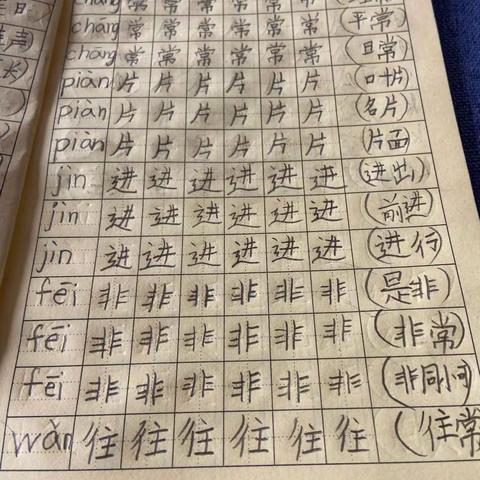 cháng 常 常 常 常 常 常 (平常)
cháng 常 常 常 常 常 常 (日常)
piàn 片 片 片 片 片 片 (叶片)
piàn 片 片 片 片 片 片 (名片)
piàn 片 片 片 片 片 片 (片面)
jìn 进 进 进 进 进 进 (进出)
jìn 进 进 进 进 进 进 (前进)
jìn 进 进 进 进 进 进 (进行)
fēi 非 非 非 非 非 非 (是非)
fēi 非 非 非 非 非 非 (非常)
fēi 非 非 非 非 非 非 (非同
wǎn 往 往 往 往 往 往 (往常